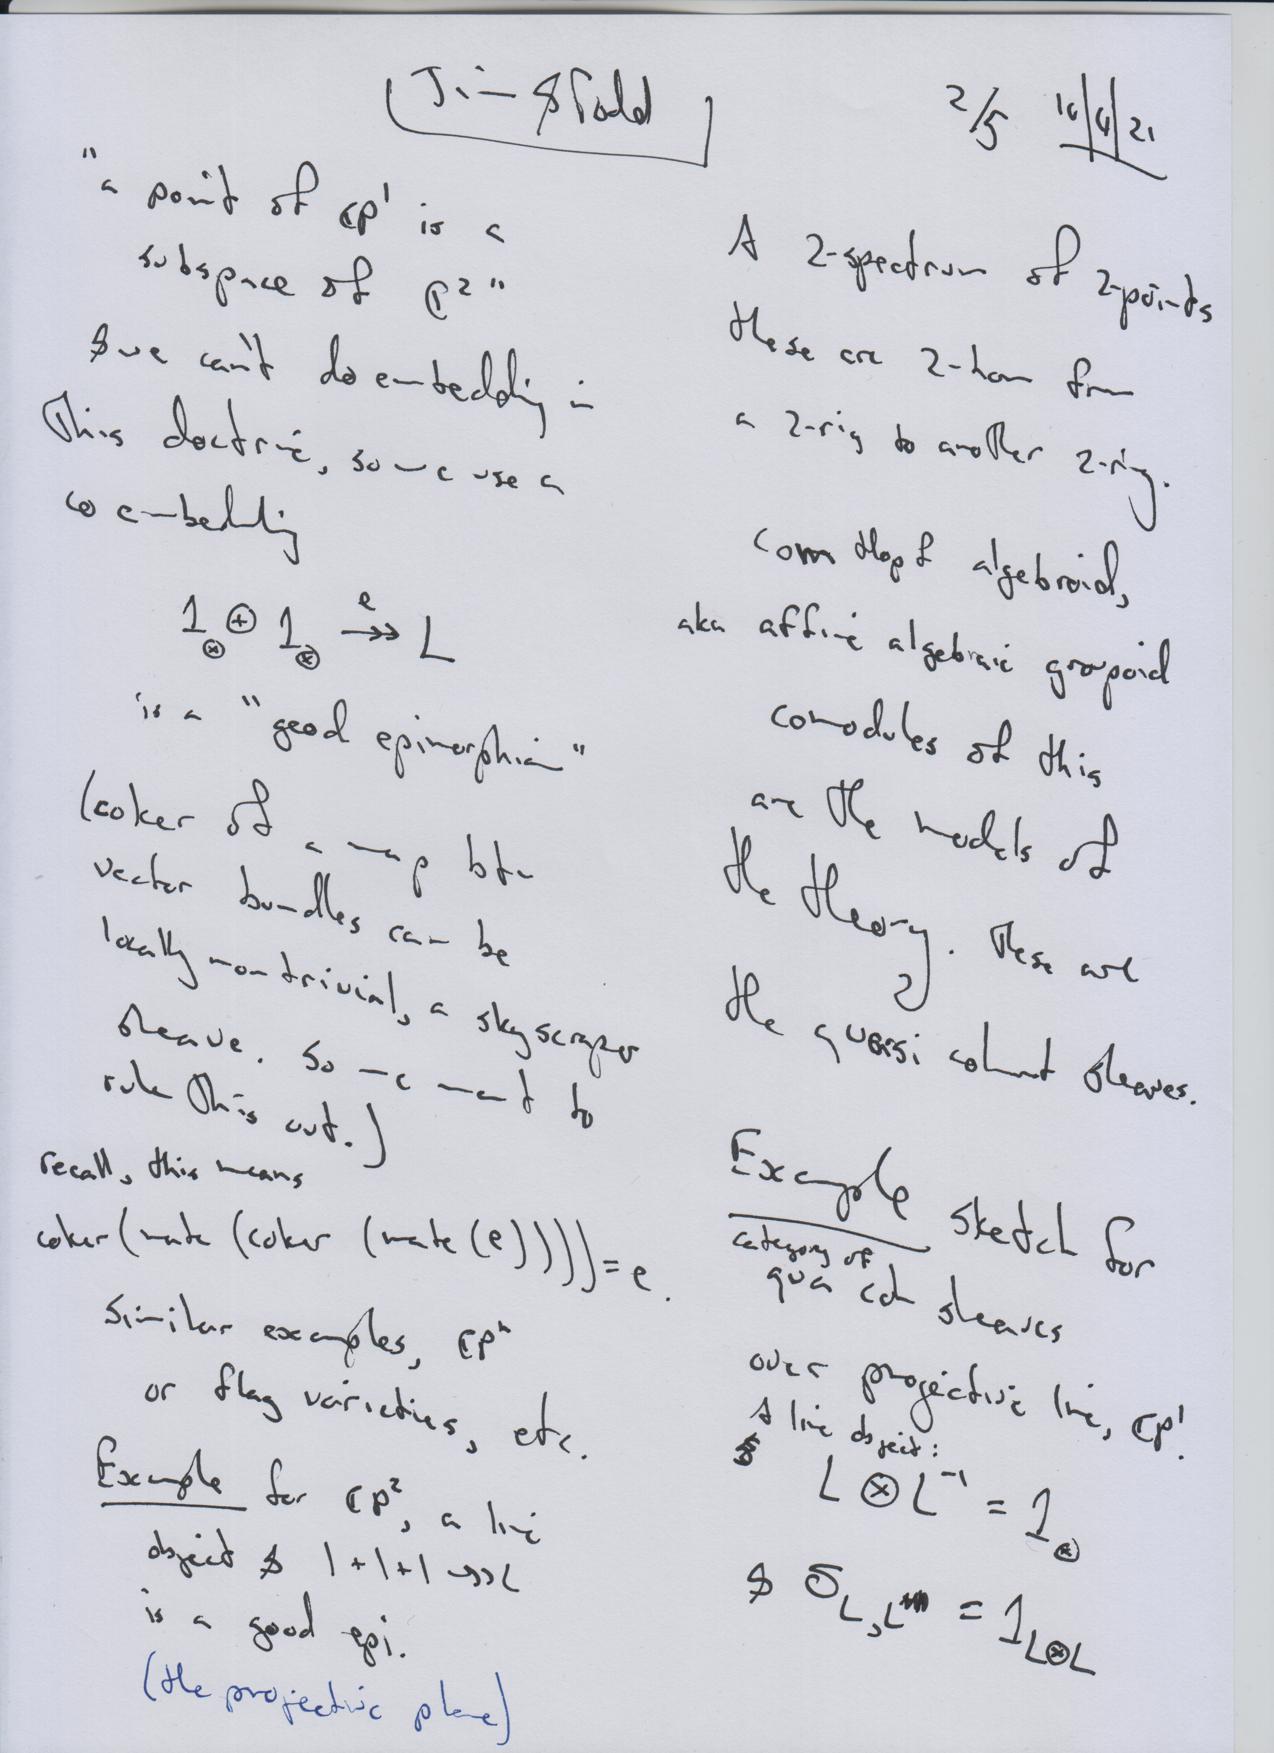 Jim & Todd
2/5 16/4/21
"a point of ℂP¹ is a
subspace of ℂ² "
& we can't do embedding in
This doctrine, so we use a
co embedding
1⊗ ⊕ 1⊗ —e↠ L
is a "good epimorphism"
(coker of a map btw
vector bundles can be
locally nontrivial, a skyscraper
sheave. So we want to
rule this out.)
recall, this means
coker(mate(coker(mate(e)))) = e.
Similar examples, ℂPⁿ
or flag varieties, etc.
Example for ℂP², a line
object & 1+1+1 ↠ L
is a good epi.
(the projective plane)
A 2-spectrum of 2-points
these are 2-hom from
a 2-rig to another 2-rig.
Com Hopf algebroid,
aka affine algebraic groupoid
comodules of this
are the models of
the theory. These are
the quasi cohernt sheaves.
Example sketch for
category of
qua coh sheaves
over projective line, ℂP¹.
A line object:
L ⊗ L⁻¹ = 1⊗
& σ_L,L = 1_L⊗L